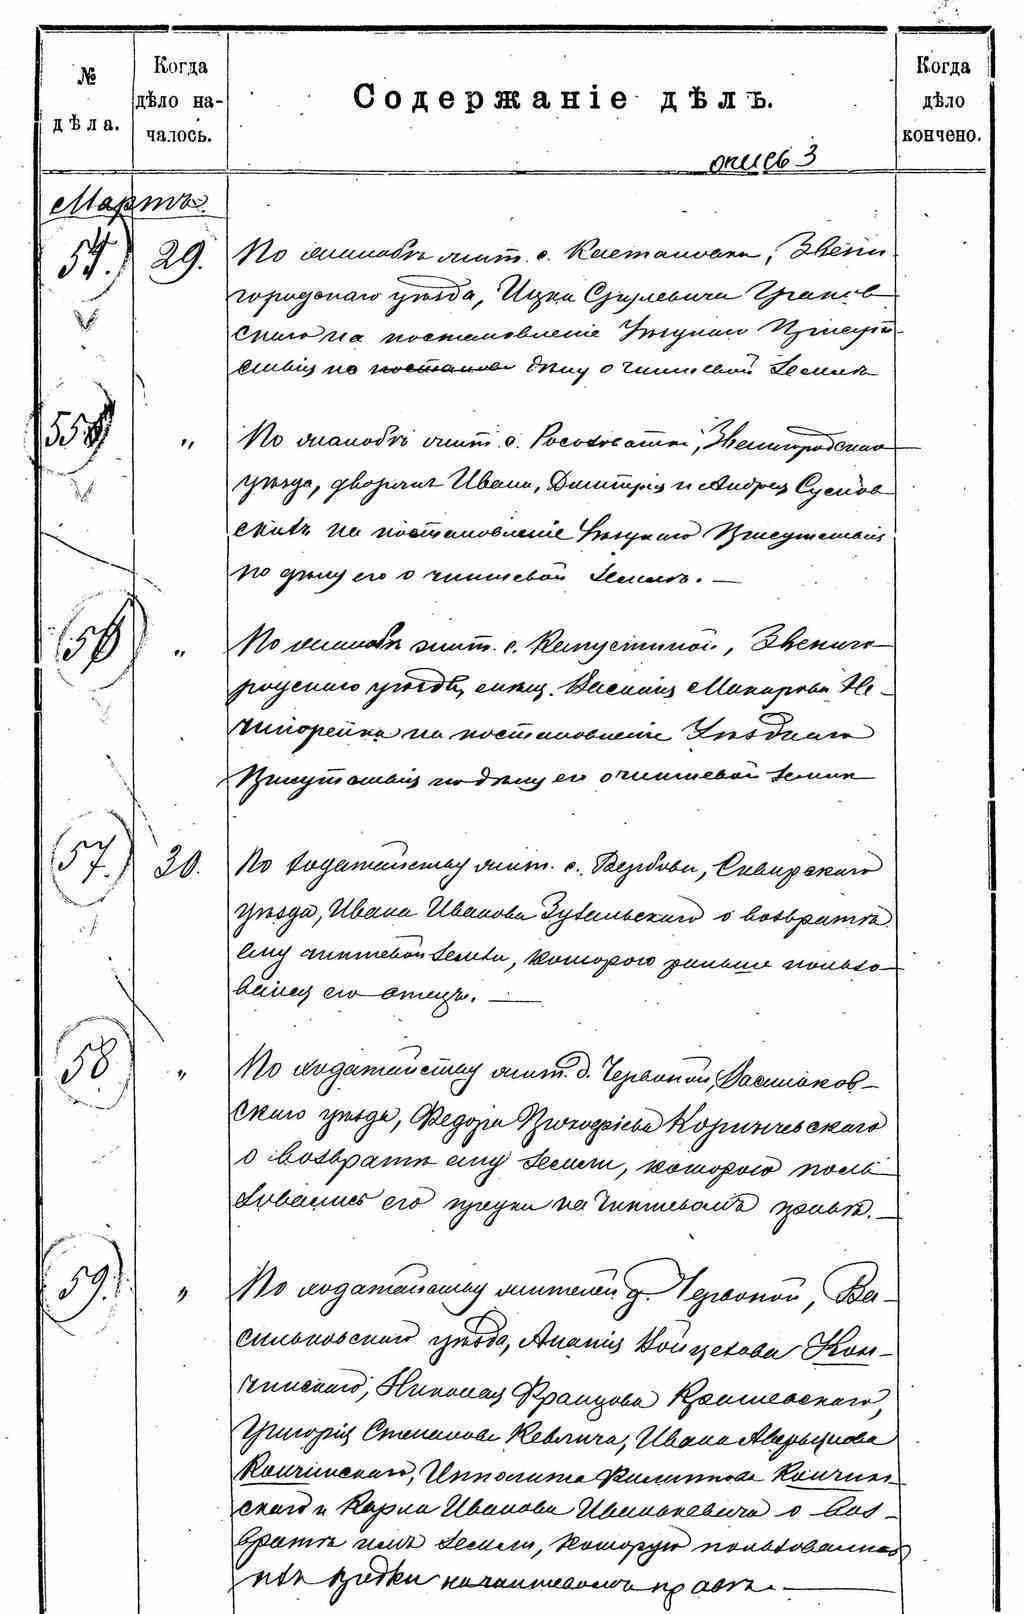 № дѣла.
Когда дѣло началось.
Содержаніе дѣлъ.
Когда дѣло кончено.
опись 3
Мартъ.
54. 29. По жалобѣ жит. с. Кастановки, Звени-
городскаго уѣзда, Ицка Сруlevича
скаго на постановленіе Уѣзднаго Присут-
ствія по постанов дѣлу о чиншевой землѣ
55 " По жалобѣ жит. с. Росоховатки, Звенигородскаго
уѣзда, дворянъ Ивана, Дмитрія и Андрея Суснов-
скихъ на постановленіе Уѣзднаго Присутствія
по дѣлу его о чиншевой землѣ. —
56 " По жалобѣ жит. с. Капустиной, Звениго-
родскаго уѣзда, Василія Макарова Не-
чипоренка на постановленіе Уѣзднаго
Присутствія по дѣлу его о чиншевой землѣ
57. 30. По ходатайству жит. с. Вербовки, Сквирскаго
уѣзда, Ивана Иванова о возвратѣ
ему чиншевой земли, которою раньше пользо-
вался его отецъ. —
58 " По ходатайству жит. д. Червоной, Васильков-
скаго уѣзда, Федора Прокофіева Коринчевскаго
о возвратѣ ему земли, которою поль-
зовались его предки на чиншевомъ правѣ. —
59. " По ходатайству жителей д. Червоной, Ва-
сильковскаго уѣзда, Ананія Войцехова Кон-
чинскаго, Николая Францова
Григорія Степанова Кевлича, Ивана Аверьянова
Кончинскаго, Ипполита Филиппова Кончин-
скаго и Карла Иванова Иванькевича о воз-
вратѣ имъ земли, которую пользовались
ихъ предки на чиншевомъ правѣ. —